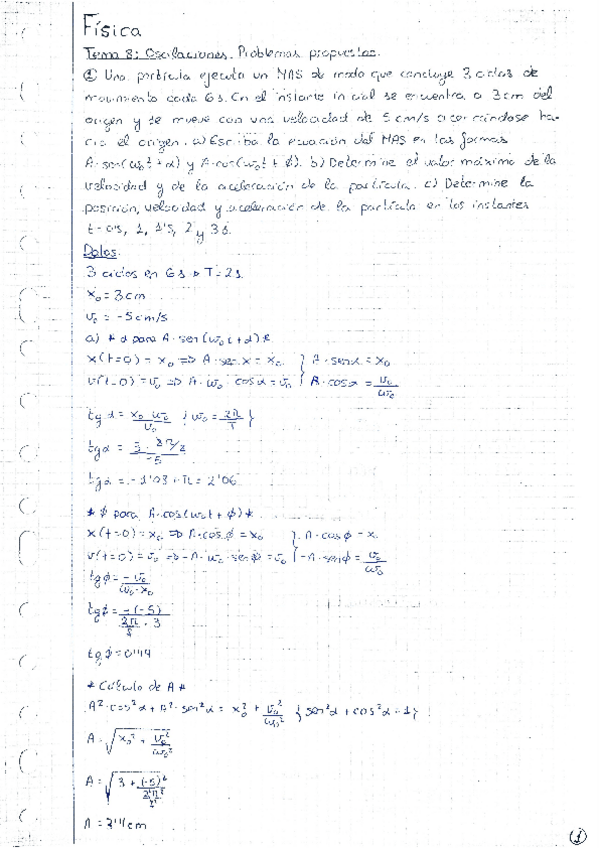 Física
Tema 8: Oscilaciones. Problemas propuestos.
① Una partícula ejecuta un MAS de modo que concluye 3 ciclos de
movimiento cada 6s. En el instante inicial se encuentra a 3cm del
origen y se mueve con una velocidad de 5 cm/s acercándose ha-
cia el origen. a) Escriba la ecuación del MAS en las formas
A·sen(ω₀t + α) y A·cos(ω₀t + ϕ). b) Determine el valor máximo de la
velocidad y de la aceleración de la partícula. c) Determine la
posición, velocidad y aceleración de la partícula en los instantes
t=0's, 1, 1's, 2 y 3s.
Datos.
3 ciclos en 6s → T=2s
x₀ = 3cm
v₀ = -5cm/s
a) * α para A·sen(ω₀t+α) *
x(t=0) = x₀ => A·sen α = x₀ } A·senα = x₀
v(t=0) = v₀ => A·ω₀·cosα = v₀ } A·cosα = v₀/ω₀
tgα = x₀·ω₀/v₀ {ω₀ = 2π/T}
tgα = 3·2π/2 / -5
tgα = -1'03+π = 2'06
* ϕ para A·cos(ω₀t + ϕ) *
x(t=0) = x₀ => A·cosϕ = x₀ } A·cosϕ = x₀
v(t=0) = v₀ => -A·ω₀·senϕ = v₀ } -A·senϕ = v₀/ω₀
tgϕ = -v₀/ω₀·x₀
tgϕ = -(-5) / 2π/2·3
tgϕ = 0'49
* Cálculo de A *
A²·cos²α + A²·sen²α = x₀² + v₀²/ω₀² {sen²α + cos²α = 1}
A = √x₀² + v₀²/ω₀²
A = √3 + (-5)²
A = 3'4 cm
①